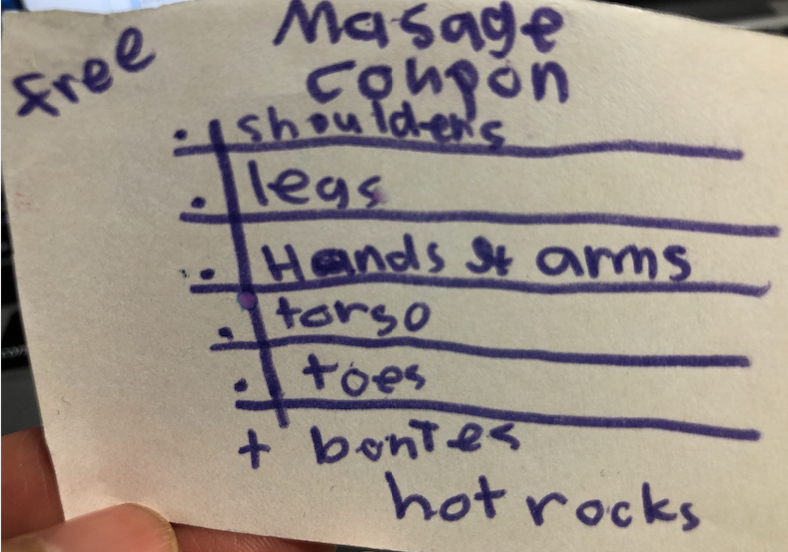 free Masage
coupon
. shoulders
. legs
. Hands & arms
. torso
. toes
+ bontes
hot rocks